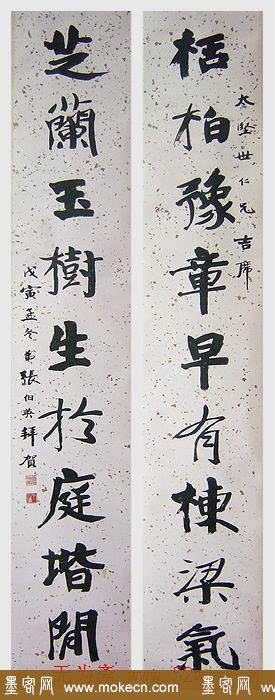 太堅世仁兄吉席
栝柏豫章早有棟梁氣
芝蘭玉樹生於庭堦閒
戊寅孟冬弟張伯英拜賀
墨客网 www.mokecn.com 墨客网